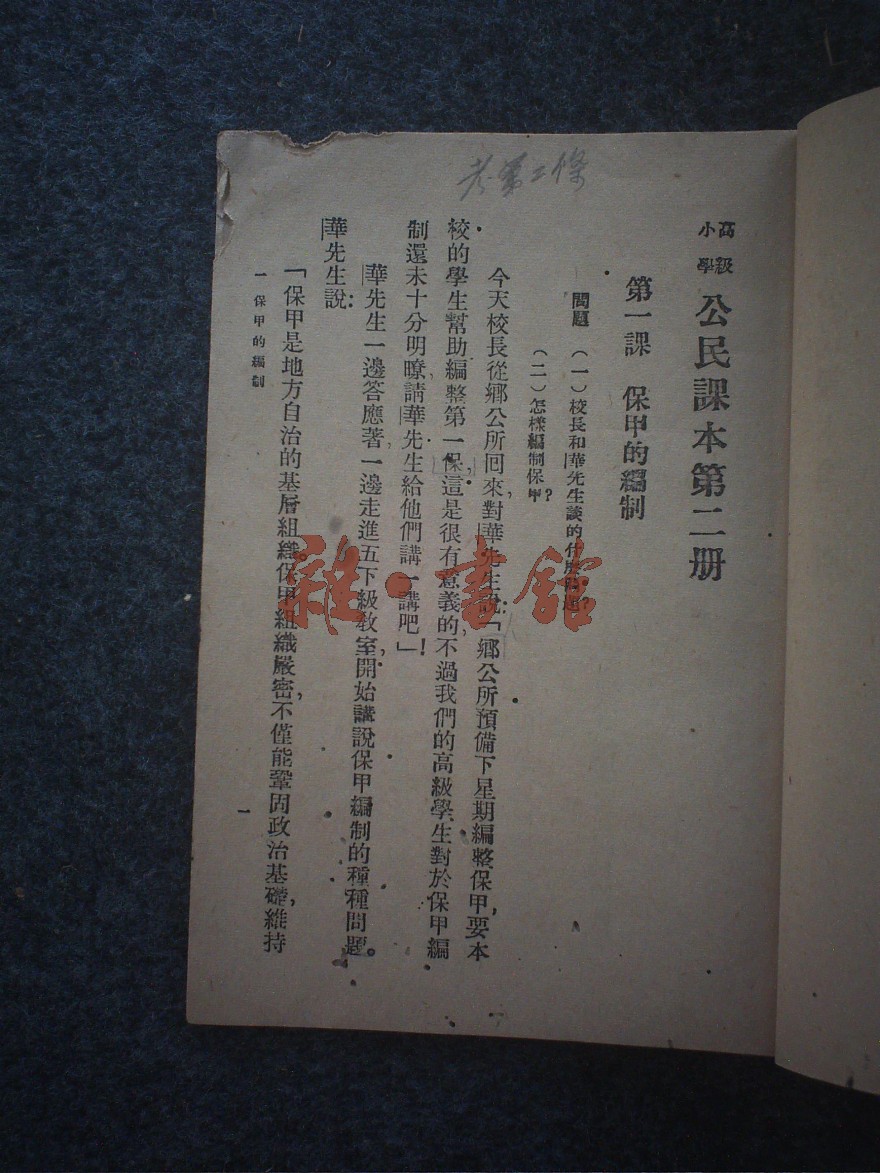 考第二條
高級
小學
公民課本第二册
第一課　保甲的編制
問題　（一）校長和華先生談的什麼問題？
（二）怎樣編制保甲？
今天校長從鄉公所回來，對華先生說：「鄉公所預備下星期編整保甲，要本
校的學生幫助編整第一保，這是很有意義的，不過我們的高級學生對於保甲編
制還未十分明瞭，請華先生給他們講一講吧！」
華先生一邊答應著，一邊走進五下級教室，開始講說保甲編制的種種問題。
華先生說：
「保甲是地方自治的基層組織。保甲組織嚴密，不僅能鞏固政治基礎，維持
一　保甲的編制
一
雜·書館